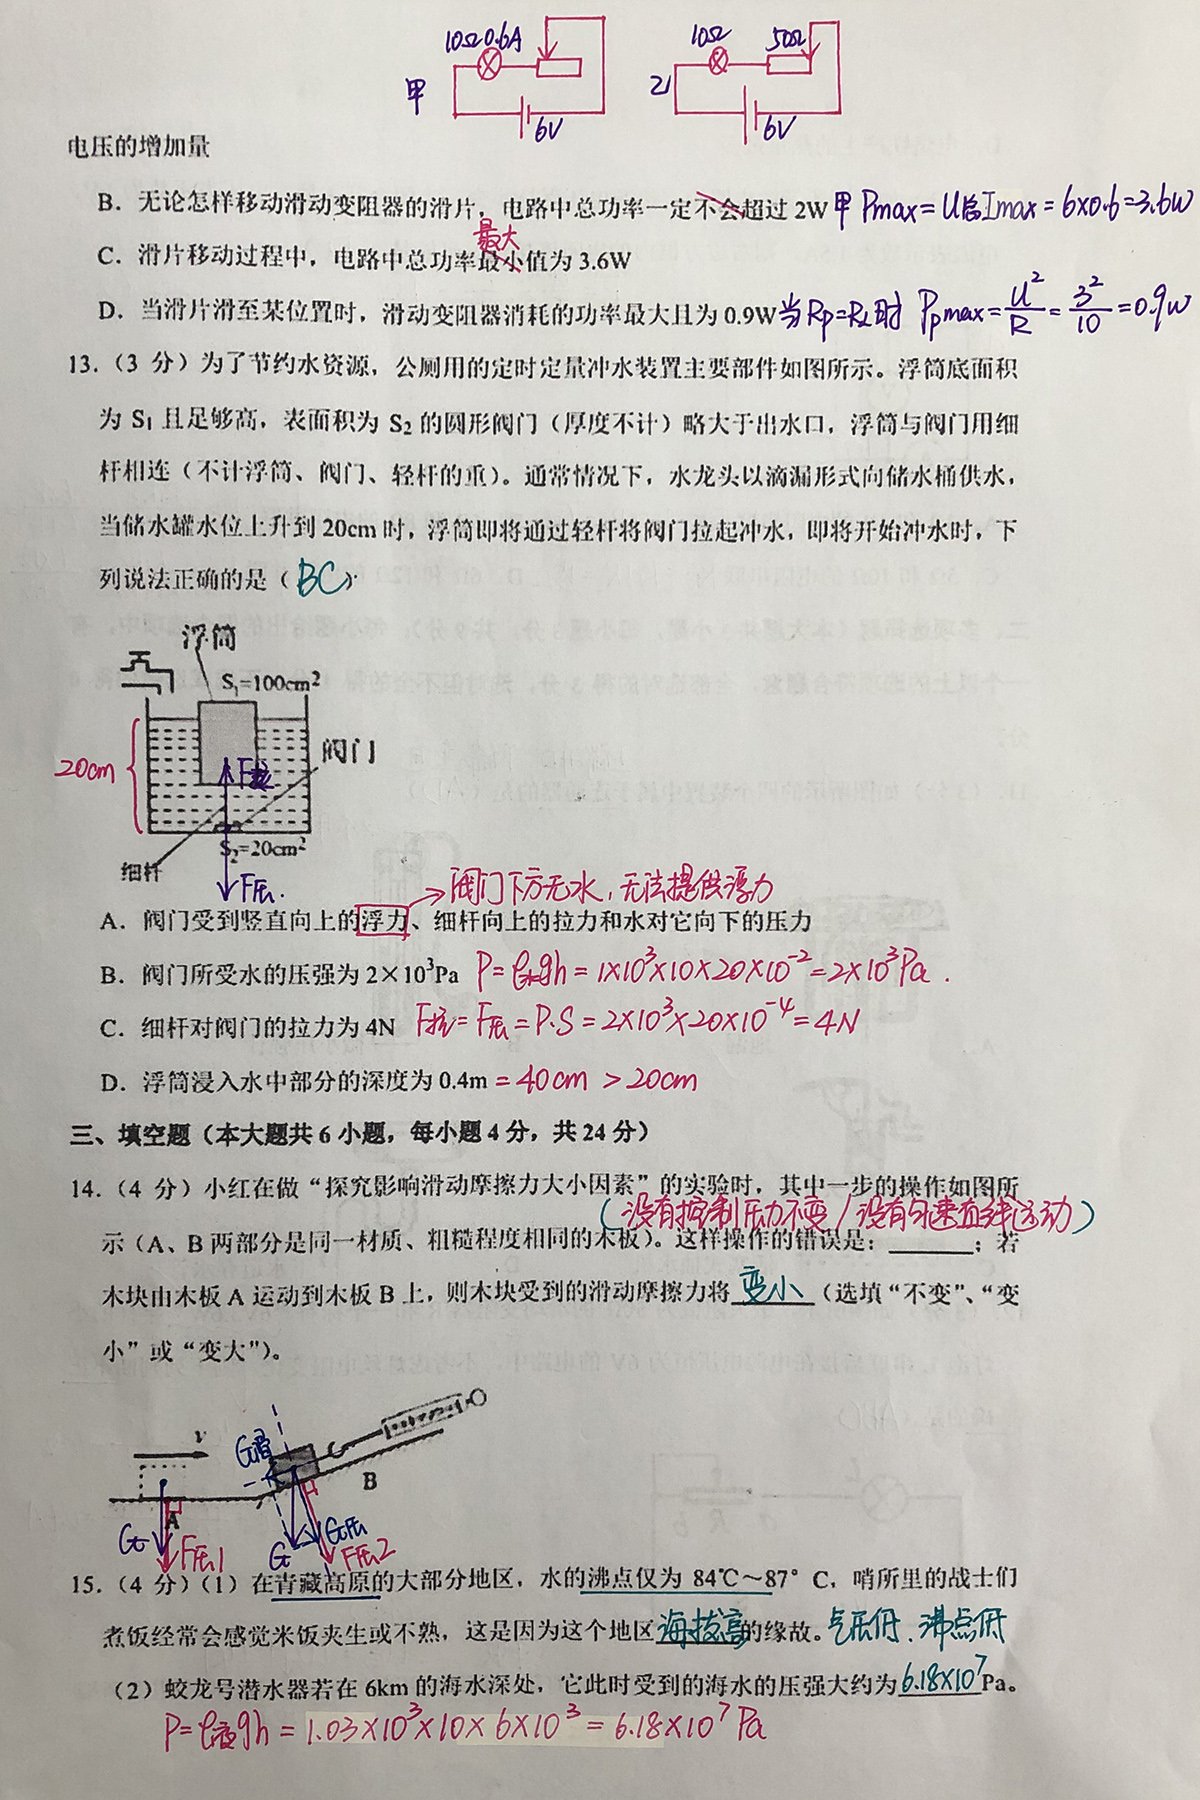 10Ω 0.6A
甲
6V
10Ω 50Ω
乙
6V
电压的增加量
B．无论怎样移动滑动变阻器的滑片，电路中总功率一定不会超过 2W 甲 Pmax = U总Imax = 6×0.6=3.6W
最大
C．滑片移动过程中，电路中总功率最小值为 3.6W
D．当滑片滑至某位置时，滑动变阻器消耗的功率最大且为 0.9W 当 Rp=RL时 Ppmax = U²/R = 3²/10 = 0.9W
13.（3 分）为了节约水资源，公厕用的定时定量冲水装置主要部件如图所示。浮筒底面积
为 S₁ 且足够高，表面积为 S₂ 的圆形阀门（厚度不计）略大于出水口，浮筒与阀门用细
杆相连（不计浮筒、阀门、轻杆的重）。通常情况下，水龙头以滴漏形式向储水桶供水，
当储水罐水位上升到 20cm 时，浮筒即将通过轻杆将阀门拉起冲水，即将开始冲水时，下
列说法正确的是（ BC ）
浮筒
S₁=100cm²
阀门
20cm
F拉
S₂=20cm²
细杆
F压.
阀门下方无水，无法提供浮力
A．阀门受到竖直向上的浮力、细杆向上的拉力和水对它向下的压力
B．阀门所受水的压强为 2×10³Pa P=ρ水gh = 1×10³×10×20×10⁻²=2×10³Pa .
C．细杆对阀门的拉力为 4N F拉=F压=P·S=2×10³×20×10⁻⁴=4N
D．浮筒浸入水中部分的深度为 0.4m = 40cm > 20cm
三、填空题（本大题共 6 小题，每小题 4 分，共 24 分）
14.（4 分）小红在做“探究影响滑动摩擦力大小因素”的实验时，其中一步的操作如图所
（没有控制压力不变/没有匀速直线运动）
示（A、B 两部分是同一材质、粗糙程度相同的木板）。这样操作的错误是：______；若
木块由木板 A 运动到木板 B 上，则木块受到的滑动摩擦力将 变小 （选填“不变”、“变
小”或“变大”）。
v
B
A
G
F压1
G
G压
F压2
15.（4 分）（1）在青藏高原的大部分地区，水的沸点仅为 84℃～87° C，哨所里的战士们
煮饭经常会感觉米饭夹生或不熟，这是因为这个地区 海拔高 的缘故。气压低、沸点低
（2）蛟龙号潜水器若在 6km 的海水深处，它此时受到的海水的压强大约为 6.18×10⁷ Pa。
P=ρ液gh = 1.03×10³×10×6×10³ = 6.18×10⁷ Pa